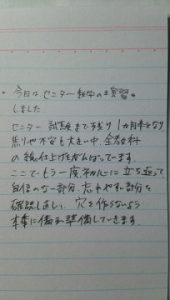 ・今日はセンター数学の演習を
しました
センター試験まで残り1カ月半となり
焦りや不安も大きい中、全教科
の総仕上げをがんばっています。
ここでもう一度初心に立ち返って
自信のない部分、忘れやすい部分を
確認し直し、穴を作らないよう
本番に備え整備していきます